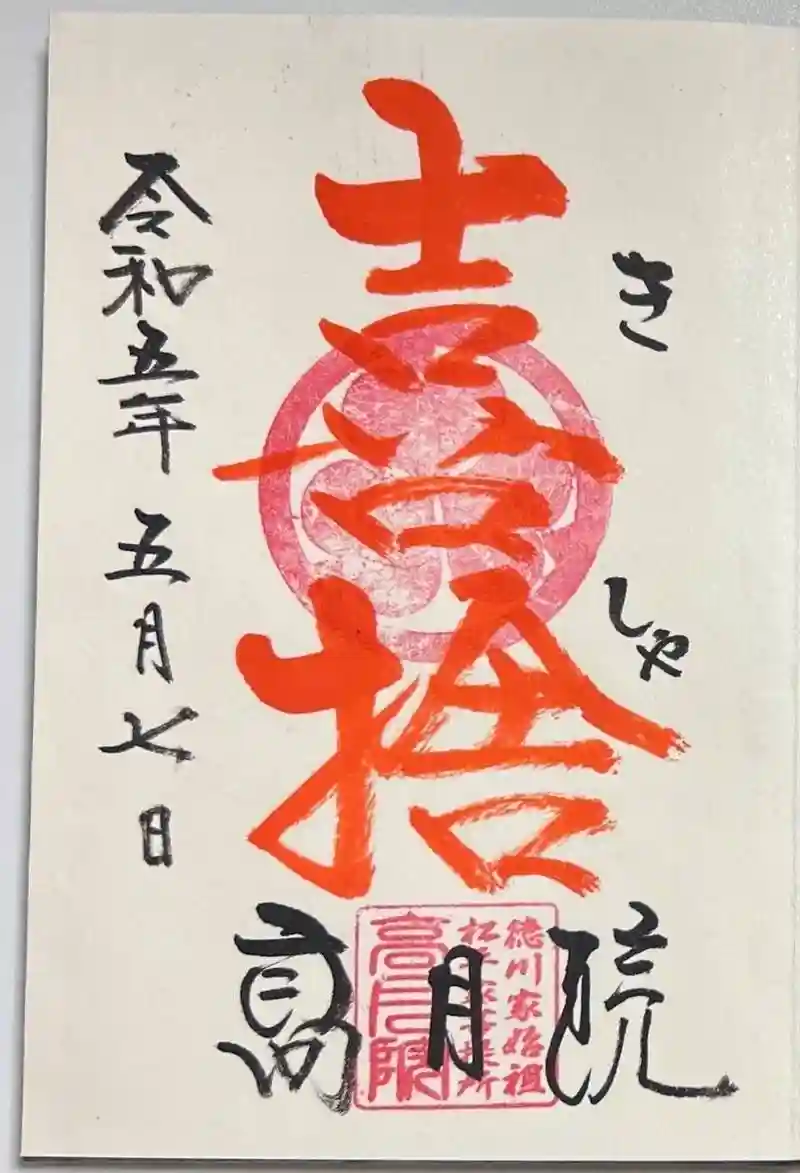 きしゃ
喜捨
令和五年五月七日
高月院
徳川家始祖
松平家菩提所
高月院